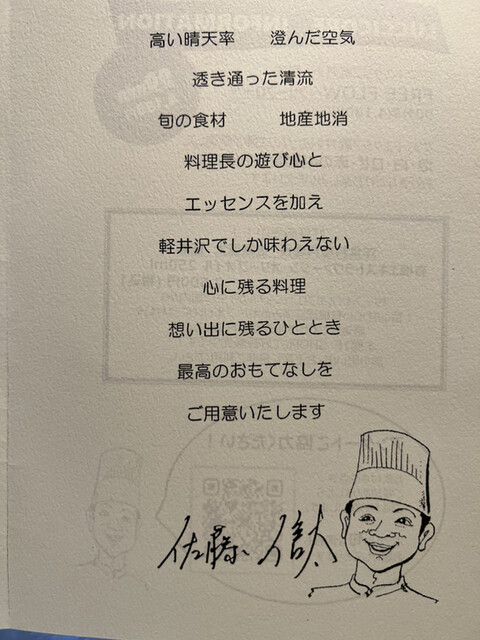 高い晴天率　　澄んだ空気
透き通った清流
旬の食材　　　地産地消
料理長の遊び心と
エッセンスを加え
軽井沢でしか味わえない
心に残る料理
想い出に残るひととき
最高のおもてなしを
ご用意いたします
佐藤 信太